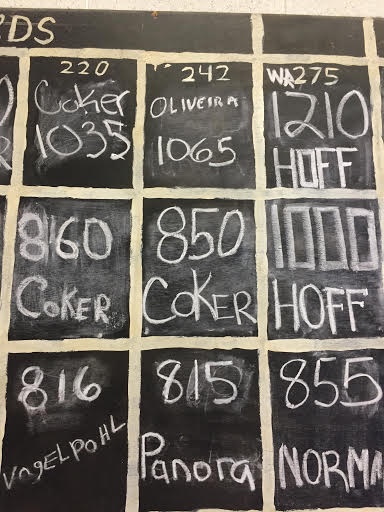 RDS
220 242 WR275
Coker OLIVEIRA 1210
1035 1065 HOFF
860 850 1000
COKER COKER HOFF
816 815 855
VOGELPOHL Panora NORMA